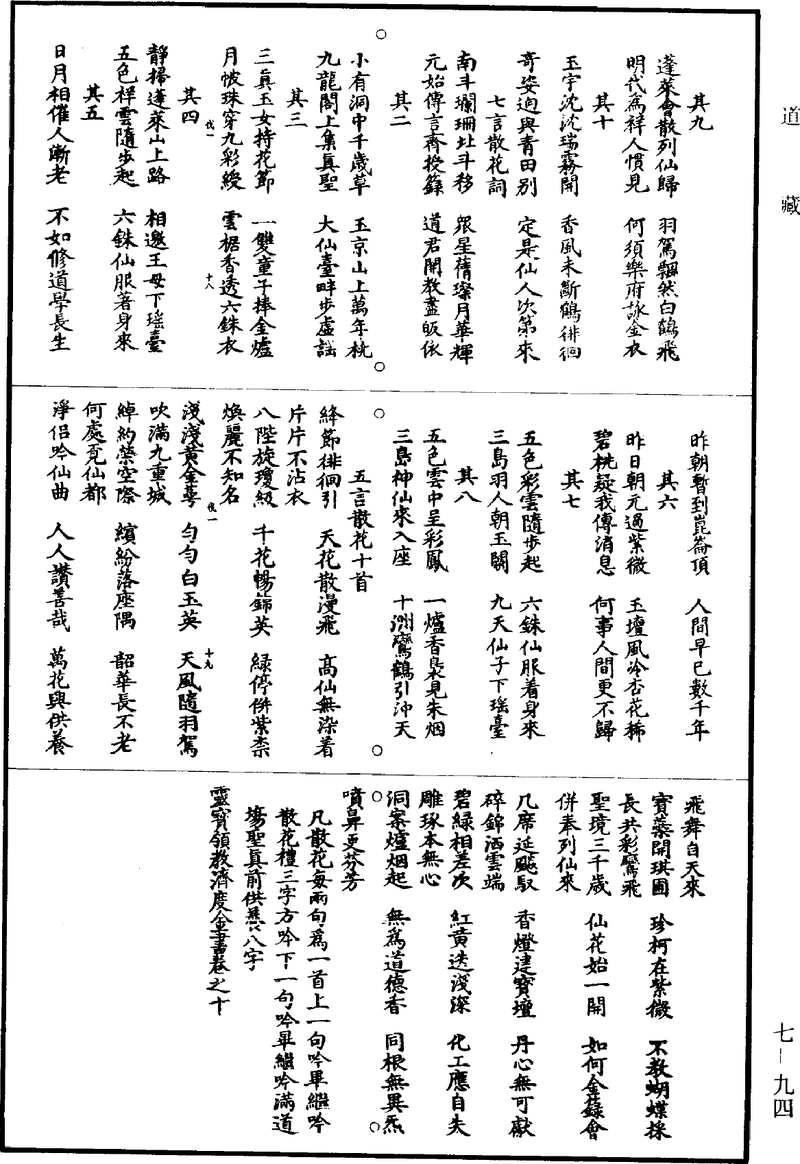 道藏
其九
蓬萊會散列仙歸　羽駕飄然白鶴飛
明代爲祥人慣見　何須樂府詠金衣
其十
玉宇沈沈瑞霧開　香風未斷鶴徘徊
奇姿迥與青田別　定是仙人次第來
七言散花詞
南斗斕珊北斗移　衆星藉璨月華輝
元始傳言齊授籙　道君開教盡皈依
其二
小有洞中千歲草　玉京山上萬年桃
九龍閣上集真聖　大仙臺畔步虛謠
其三
三真玉女持花節　一雙童子捧金爐
月帔珠穿九彩綬　雲裾香透六銖衣
伐一　十八
其四
靜掃蓬萊山上路　相邀王母下瑤臺
五色祥雲隨步起　六銖仙服著身來
其五
日月相催人漸老　不如修道學長生
昨朝暫到崑崙頂　人間早已數千年
其六
昨日朝元過紫微　玉壇風冷杏花稀
碧桃疑我傳消息　何事人間更不歸
其七
五色彩雲隨步起　六銖仙服着身來
三島羽人朝玉闕　九天仙子下瑤臺
其八
五色雲中呈彩鳳　一爐香裊見朱烟
三島神仙來入座　十洲鸞鶴引沖天
五言散花十首
絳節徘徊引　天花散漫飛　高仙無染着
片片不沾衣
八陛旋瓊級　千花暢錦英　緑停併紫柰
煥麗不知名
淺淺黃金萼　勻勻白玉英　天風隨羽駕
伐一　十九
吹滿九重城
綽約縈空際　繽紛落座隅　韶華長不老
何處覓仙都
淨侶吟仙曲　人人讚善哉　萬花興供養
飛舞自天來
寶蘂開琪圃　珍柯在紫微　不教蝴蝶採
長共彩鸞飛
聖境三千歲　仙花始一開　如何金籙會
併奉列仙來
几席延飈馭　香燈建寶壇　丹心無可獻
碎錦洒雲端
碧緑相差次　紅黃迭淺深　化工應自失
雕琢本無心
洞案爐烟起　無爲道德香　同根無異炁
噴鼻更芬芳
凡散花每兩句爲一首上一句吟畢繼吟
散花禮三字方吟下一句吟畢繼吟滿道
塲聖真前供養八字
靈寶領教濟度金書卷之十
七－九四